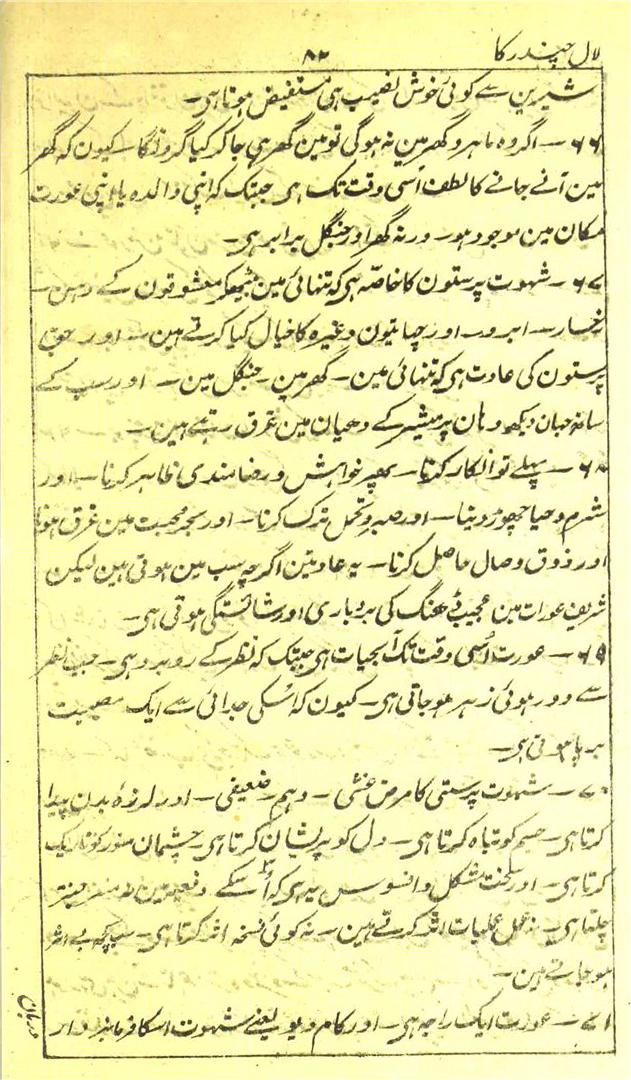 لال چندرکا ۸۲
شیرین سے کوئی خوش نصیب ہی مستفیض ہوتا ہی۔
۶۶۔ اگر وہ ماہرو گھر مین نہ ہوگی تو مین گھر ہی جا کر کیا کرونگا۔ کیون کہ گھر
مین آنے جانے کا لطف اُسی وقت تک ہی جبتک کہ اپنی والدہ یا اپنی عورت
مکان مین موجود ہو۔ ورنہ گھر اور جنگل برابر ہی۔
۶۷۔ شہوت پرستون کا خاصّہ ہی کہ تنہائی مین بیٹھکر معشوقون کے دہن۔
رخسار۔ ابرو۔ اور چھاتیون وغیرہ کا خیال کیا کرتے ہین۔ اور حق
پرستون کی عادت ہی کہ تنہائی مین۔ گھر مین۔ جنگل مین۔ اور سب کے
ساتھ جہان دیکھو وہان پرمیشر کے دھیان مین غرق رہتے ہین۔
۶۸۔ پہلے تو انکار کرنا۔ پھر خواہش و رضامندی ظاہر کرنا۔ اور
شرم و حیا چھوڑ دینا۔ اور صبر و تحمل ترک کرنا۔ اور بحر محبت مین غرق ہونا
اور ذوق وصال حاصل کرنا۔ یہ عادتین اگرچہ سب مین ہوتی ہین لیکن
شریف عورات مین عجیب ڈھنگ کی بردباری اور شائستگی ہوتی ہی۔
۶۹۔ عورت اُسی وقت تک آبحیات ہی جبتک کہ نظر کے روبرو ہی۔ جب نظر
سے دور ہوئی زہر ہو جاتی ہی۔ کیون کہ اُسکی جدائی سے ایک مصیبت
برپا ہوتی ہی۔
۷۰۔ شہوت پرستی کا مرض غشی۔ وہم۔ ضعیفی۔ اور لرزۂ بدن پیدا
کرتا ہی۔ جسم کو تباہ کرتا ہی۔ دل کو پریشان کرتا ہی۔ چشمان منور کو تاریک
کرتا ہی۔ اور سخت مشکل و افسوس یہ ہی کہ اُسکے دفعیہ مین نہ منتر جنتر
چلتا ہی۔ نہ عمل عملیات اثر کرتے ہین۔ نہ کوئی نسخہ اثر کرتا ہی۔ سب کچھ بے اثر
ہو جاتے ہین۔
۷۱۔ عورت ایک راجہ ہی۔ اور کام دیو یعنے شہوت اُسکا فرمانبردار